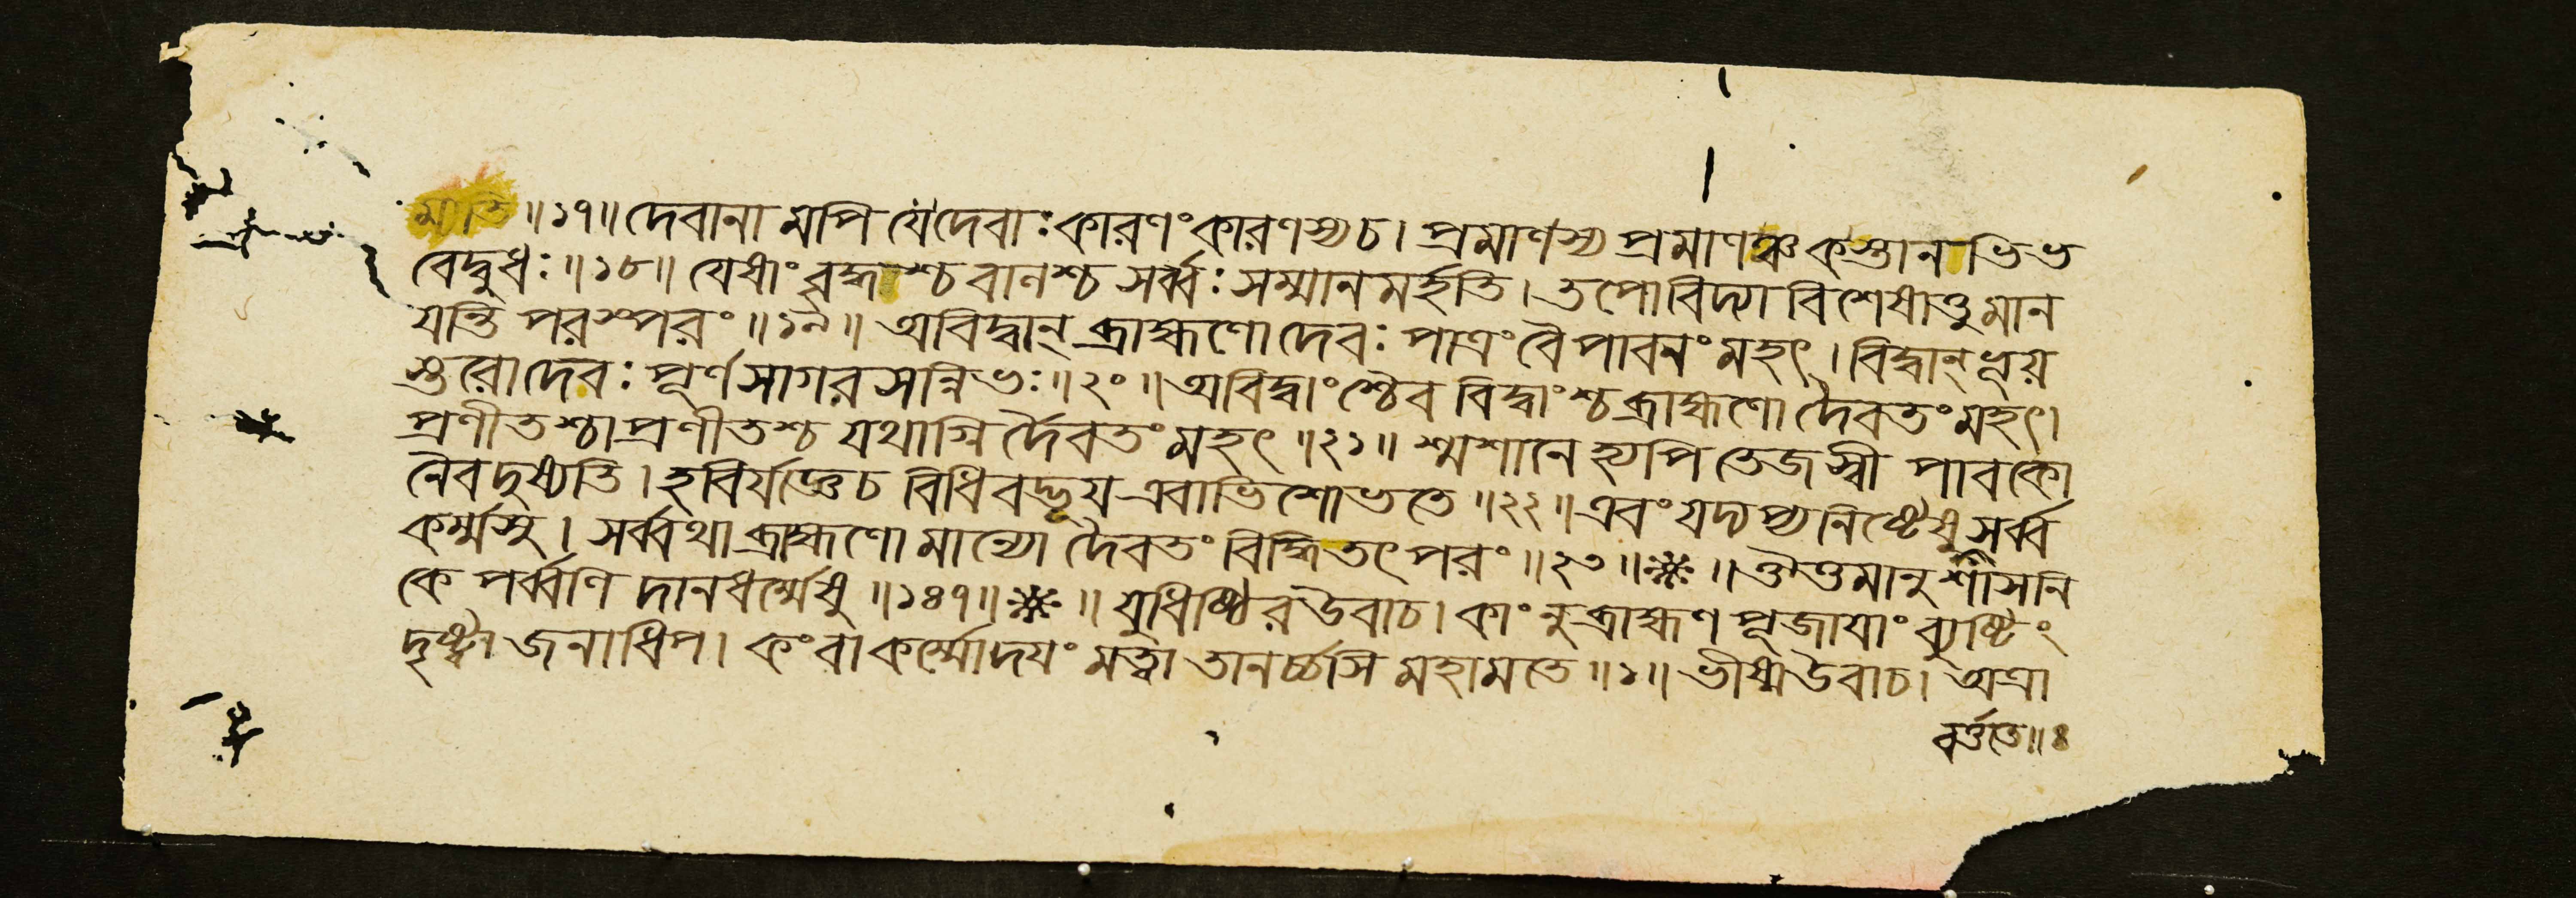 মাতি ॥১৭॥ দেবানা মপি যেদেবাঃ কারণংকারণস্যচ। প্রমাণস্য প্রমাণঞ্চ কস্তানভিভ
বেদ্বুধঃ॥১৮॥ যেষাং বৃদ্ধাশ্চ বানশ্চ সর্ব্বঃ সম্মানমর্হতি। তপোবিদ্যা বিশেষাত্তুমান
যন্তি পরস্পরং ॥১৯॥ অবিদ্বান্ ব্রাহ্মণোদেবঃ পাত্রং বৈপাবনংমহৎ। বিদ্বান্ ভূয়
স্তরোদেবঃ পূর্ণসাগরসন্নিভঃ॥২০॥ অবিদ্বাংশ্চৈব বিদ্বাংশ্চব্রাহ্মণো দৈবতংমহৎ।
প্রণীতশ্চাপ্রণীতশ্চ যথাগ্নি র্দৈবতংমহৎ ॥২১॥ শ্মশানে হ্যপি তেজস্বী পাবকো
নৈবদুষ্যতি। হবির্যজ্ঞেচ বিধিবদ্ভূয এবাভিশোভতে ॥২২॥ এবংযদ্যপ্যনিষ্টেষুসর্ব্ব
কর্ম্মসু। সর্ব্বথাব্রাহ্মণো মান্যো দৈবতং বিদ্ধিতৎপরং ॥২৩॥※॥ ঔত্তমানুশাসনি
কে পর্ব্বণি দানধর্ম্মেষু ॥১৪৭॥※॥ যুধিষ্ঠিরউবাচ। কাংনুব্রাহ্মণপূজাযাং ব্যুষ্টিং
দৃষ্ট্বা জনাধিপ। কংবাকর্ম্মোদযংমত্বা তানর্চ্চসি মহামতে ॥১॥ ভীষ্মউবাচ। অত্রা
বর্ত্ততে॥৪